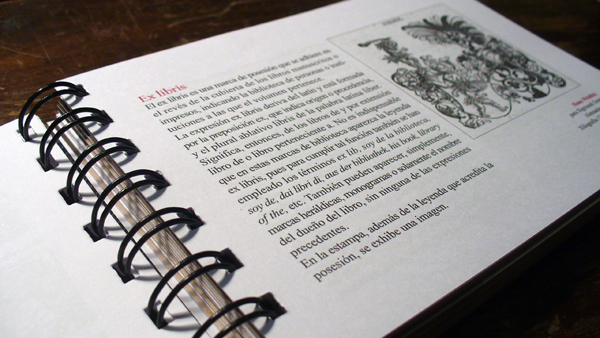 Ex libris
El ex libris es una marca de posesión que se adhiere en
el revés de la cubierta de los libros manuscritos o
impresos, indicando la biblioteca de personas o insti-
tuciones a las que el volumen pertenece.
La expresión ex libris deriva del latín y está formada
por la preposición ex, que indica origen o procedencia,
y el plural ablativo libris de la palabra latina liber.
Significa, entonces, de los libros de y por extensión
libro de o libro perteneciente a. No es indispensable
que en estas marcas de biblioteca aparezca la leyenda
ex libris, pues para cumplir tal función también se han
empleado los términos ex lib, soy de la biblioteca,
soy de, dai libri di, aus der bibliothek, his book, library
of the, etc. También pueden aparecer, simplemente
marcas heráldicas, monogramas o solamente el nombre
del dueño del libro, sin ninguna de las expresiones
precedentes.
En la estampa, además de la leyenda que acredita la
posesión, se exhibe una imagen.